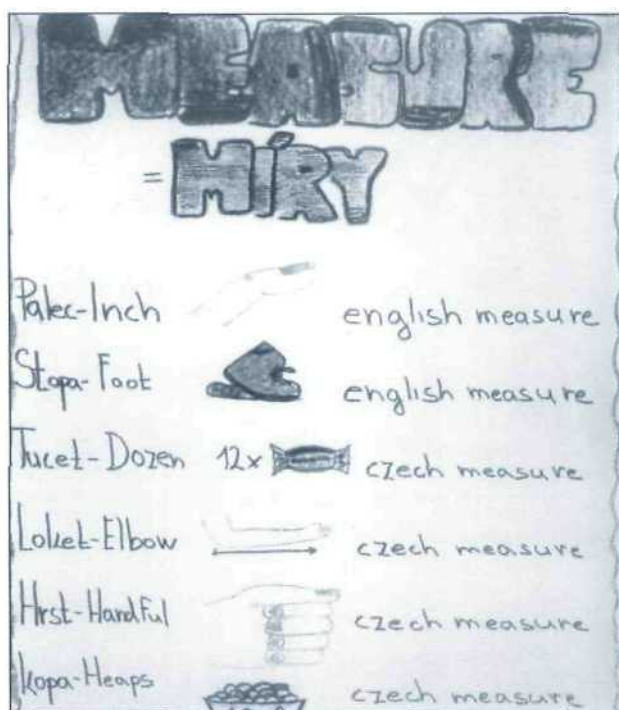 MEASURE
= MÍRY
Palec-Inch english measure
Stopa-Foot english measure
Tucet-Dozen 12x czech measure
Loket-Elbow czech measure
Hrst-Handful czech measure
kopa-Heaps czech measure